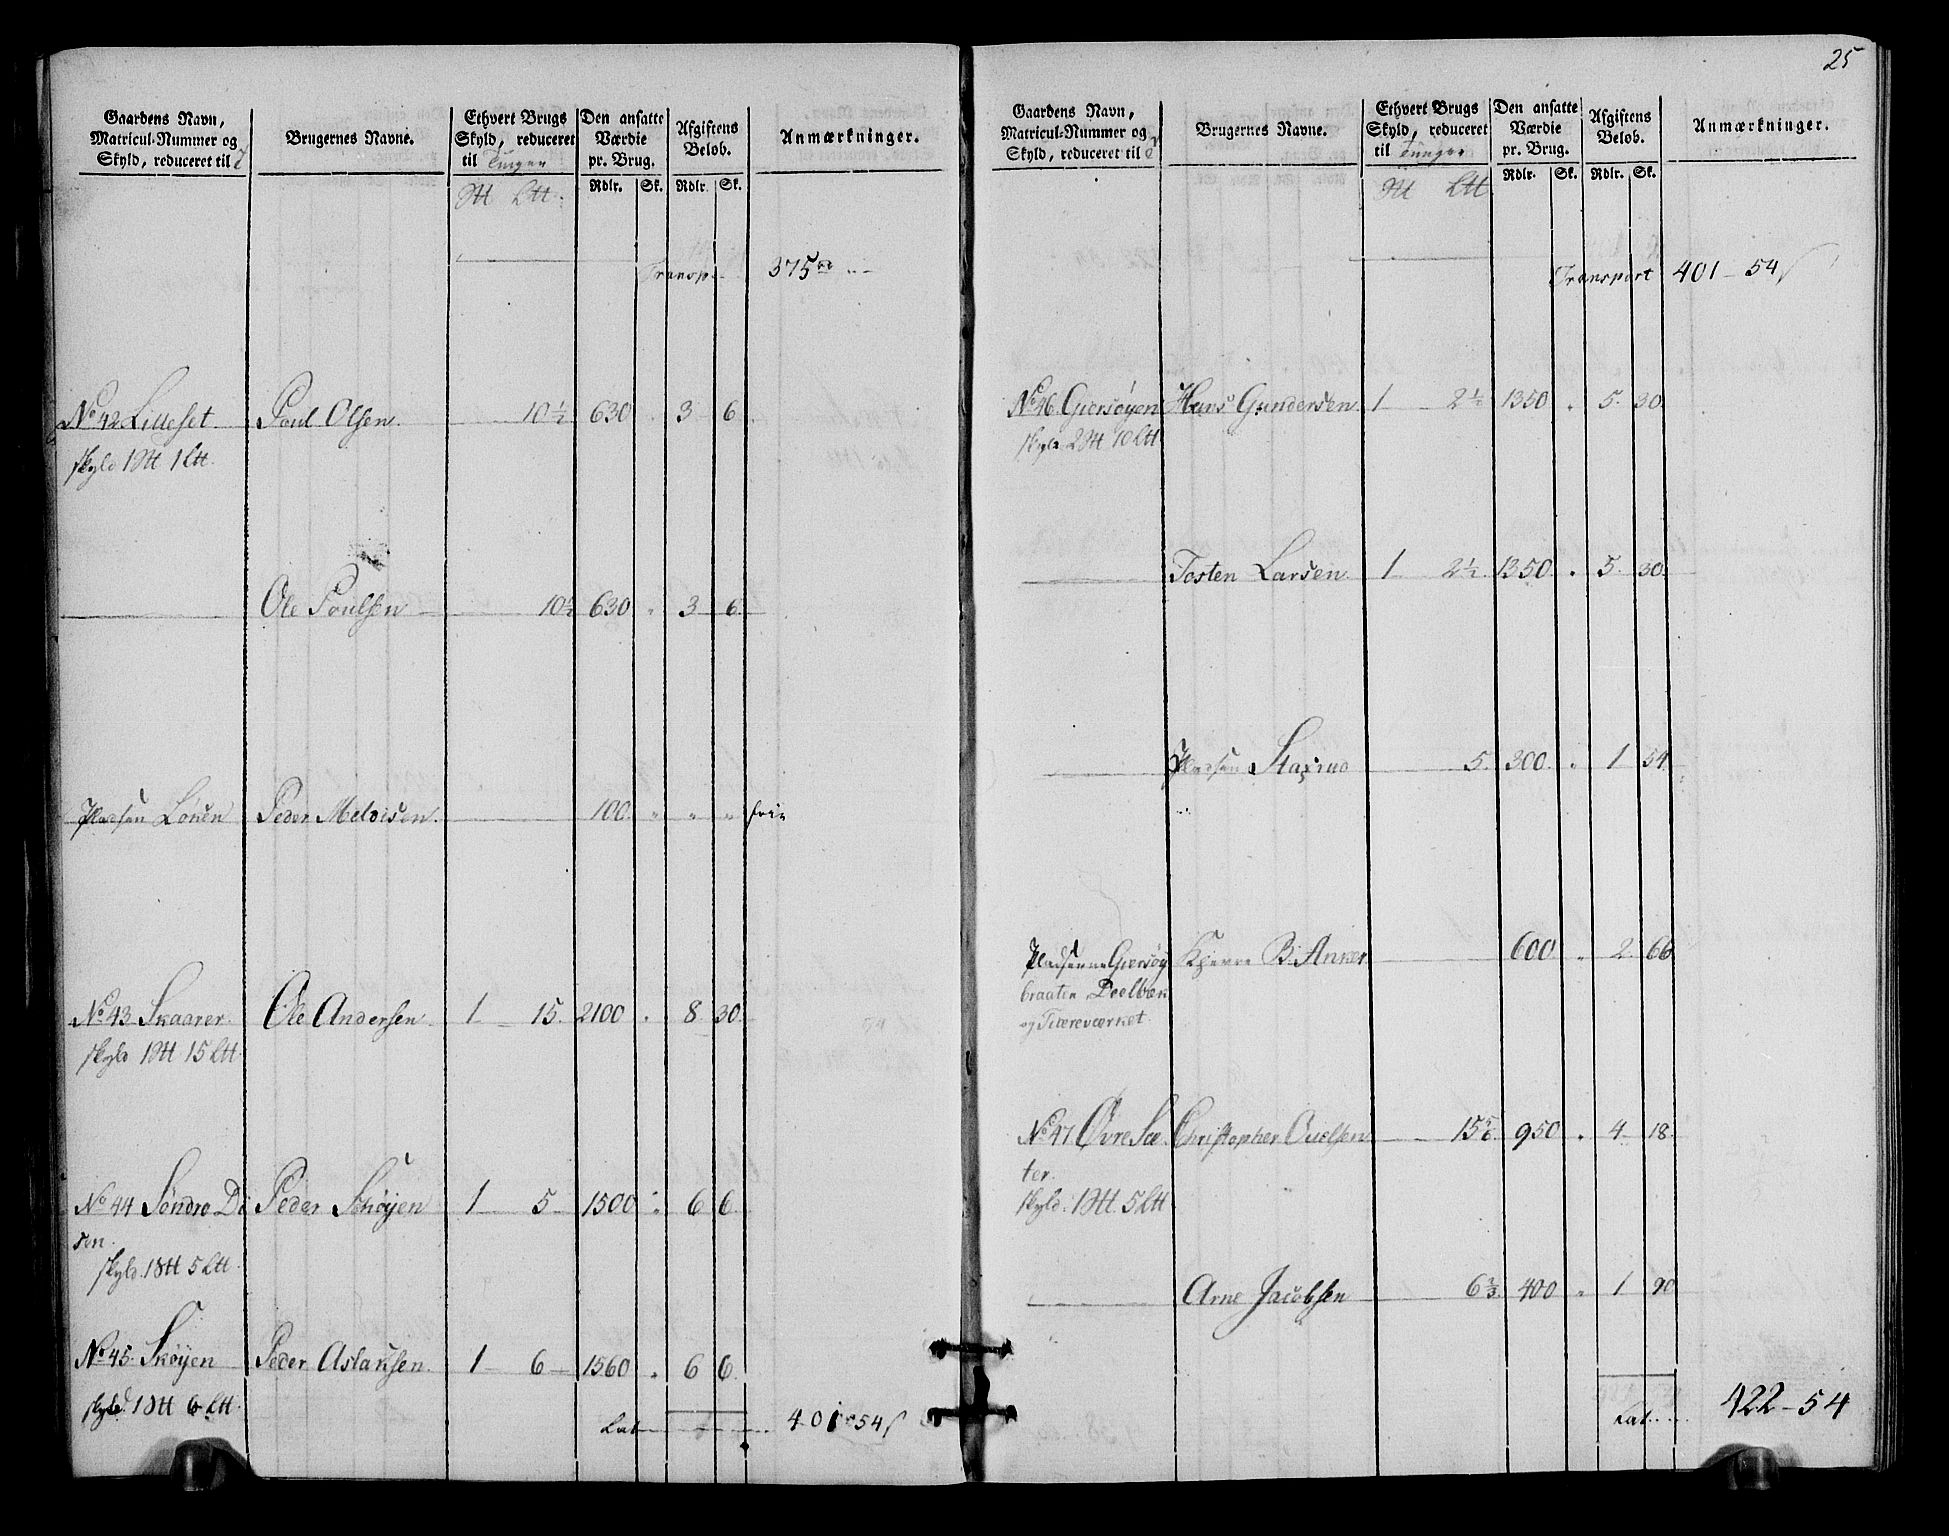 25
Gaardens Navn, Matricul-Nummer og Skyld, reduceret til | Brugernes Navne. | Ethvert Brugs Skyld, reduceret til Tunger | Den ansatte Værdie pr. Brug. | Afgiftens Beløb. | Anmærkninger.
Rdlr. Sk. Rdlr. Sk.
Transp. 375
No 42 Lilleset Poul Olsen. 10½ 630 " 3 6
skyld 1 1
Ole Poulsen 10½ 630 " 3 6.
Pladsen Løuen Peder Meloisen. 100. " " " frie
No 43 Skaarer. Ole Andersen 1 15. 2100 " 8 30.
skyld 1 15
No 44 Søndre Dø Peder Skøyen 1 5 1500 " 6 6
sen.
skyld. 1 5
No 45. Skøyen Peder Aslaksen. 1 6 1560 " 6 6
skyld 1 6
Lat. 401 54
Gaardens Navn, Matricul-Nummer og Skyld, reduceret til | Brugernes Navne. | Ethvert Brugs Skyld, reduceret til Tunger | Den ansatte Værdie pr. Brug. | Afgiftens Beløb. | Anmærkninger.
Rdlr. Sk. Rdlr. Sk.
Transport 401 - 54
No 46. Giersøyen Hans Gundersen 1 2½ 1350 " 5. 30
skyld 2 10
Tosten Larsen. 1 2½ 1350. " 5. 30
Pladsen 5. 300. " 1 54
Pladserne Giersøy B. Anker 600 " 2. 66
braaten Deelbæk
og Tiæreværket
No 47. Øvre Sæ Christopher 15⅚ 950 " 4 18.
ter.
skyld. 1 5
Arne Jacobsen 6⅔ 400 " 1 90
Lat. 422 - 54